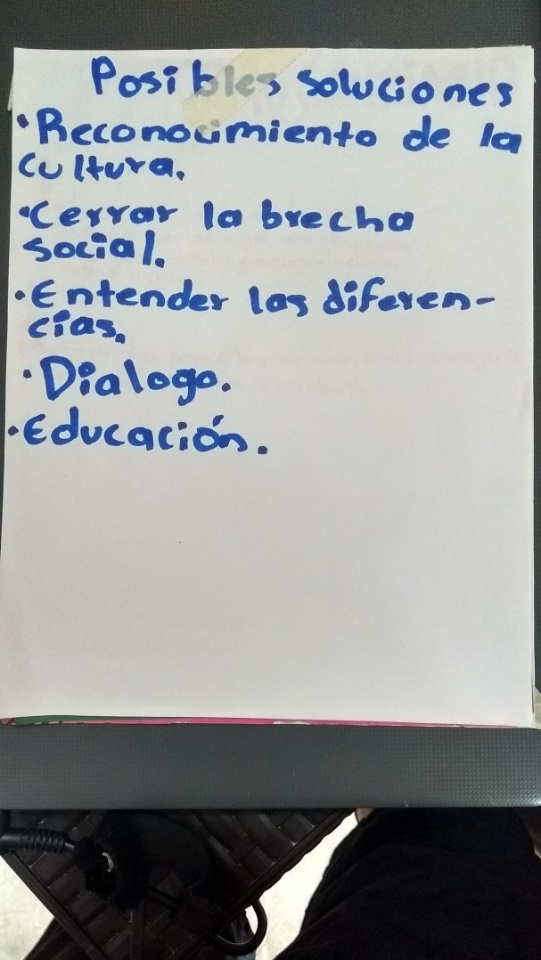 Posibles soluciones
•Reconocimiento de la
cultura.
•Cerrar la brecha
social.
•Entender las diferen-
cías.
•Dialogo.
•Educación.